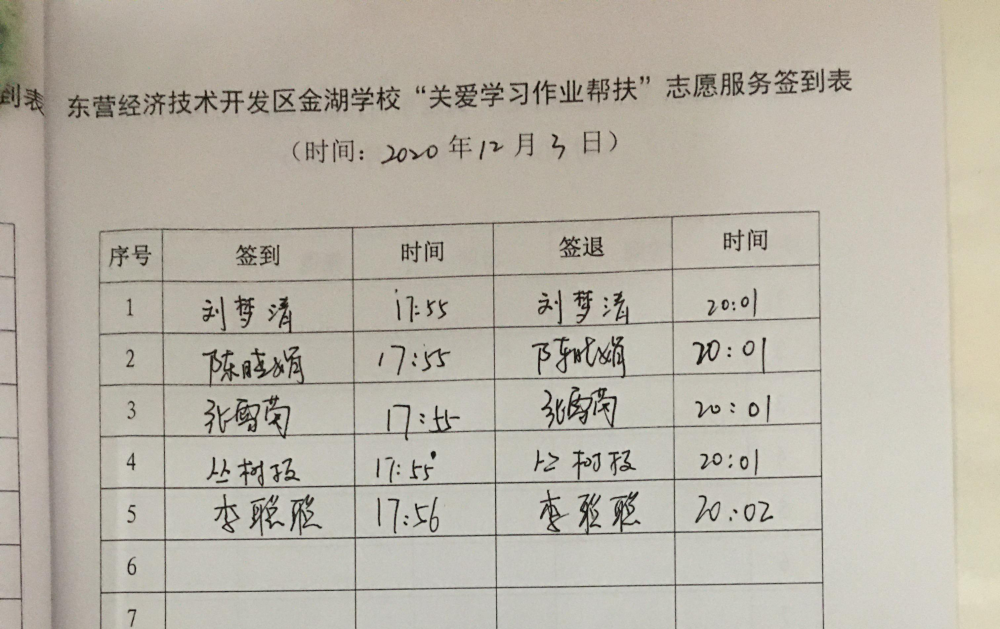 到表
东营经济技术开发区金湖学校“关爱学习作业帮扶”志愿服务签到表
（时间：2020年12月3日）
序号 签到 时间 签退 时间
1 刘梦清 17:55 刘梦清 20:01
2 陈晓娟 17:55 陈晓娟 20:01
3 张雪菊 17:55 张雪菊 20:01
4 丛树 17:55 丛树 20:01
5 李聪聪 17:56 李聪聪 20:02
6
7